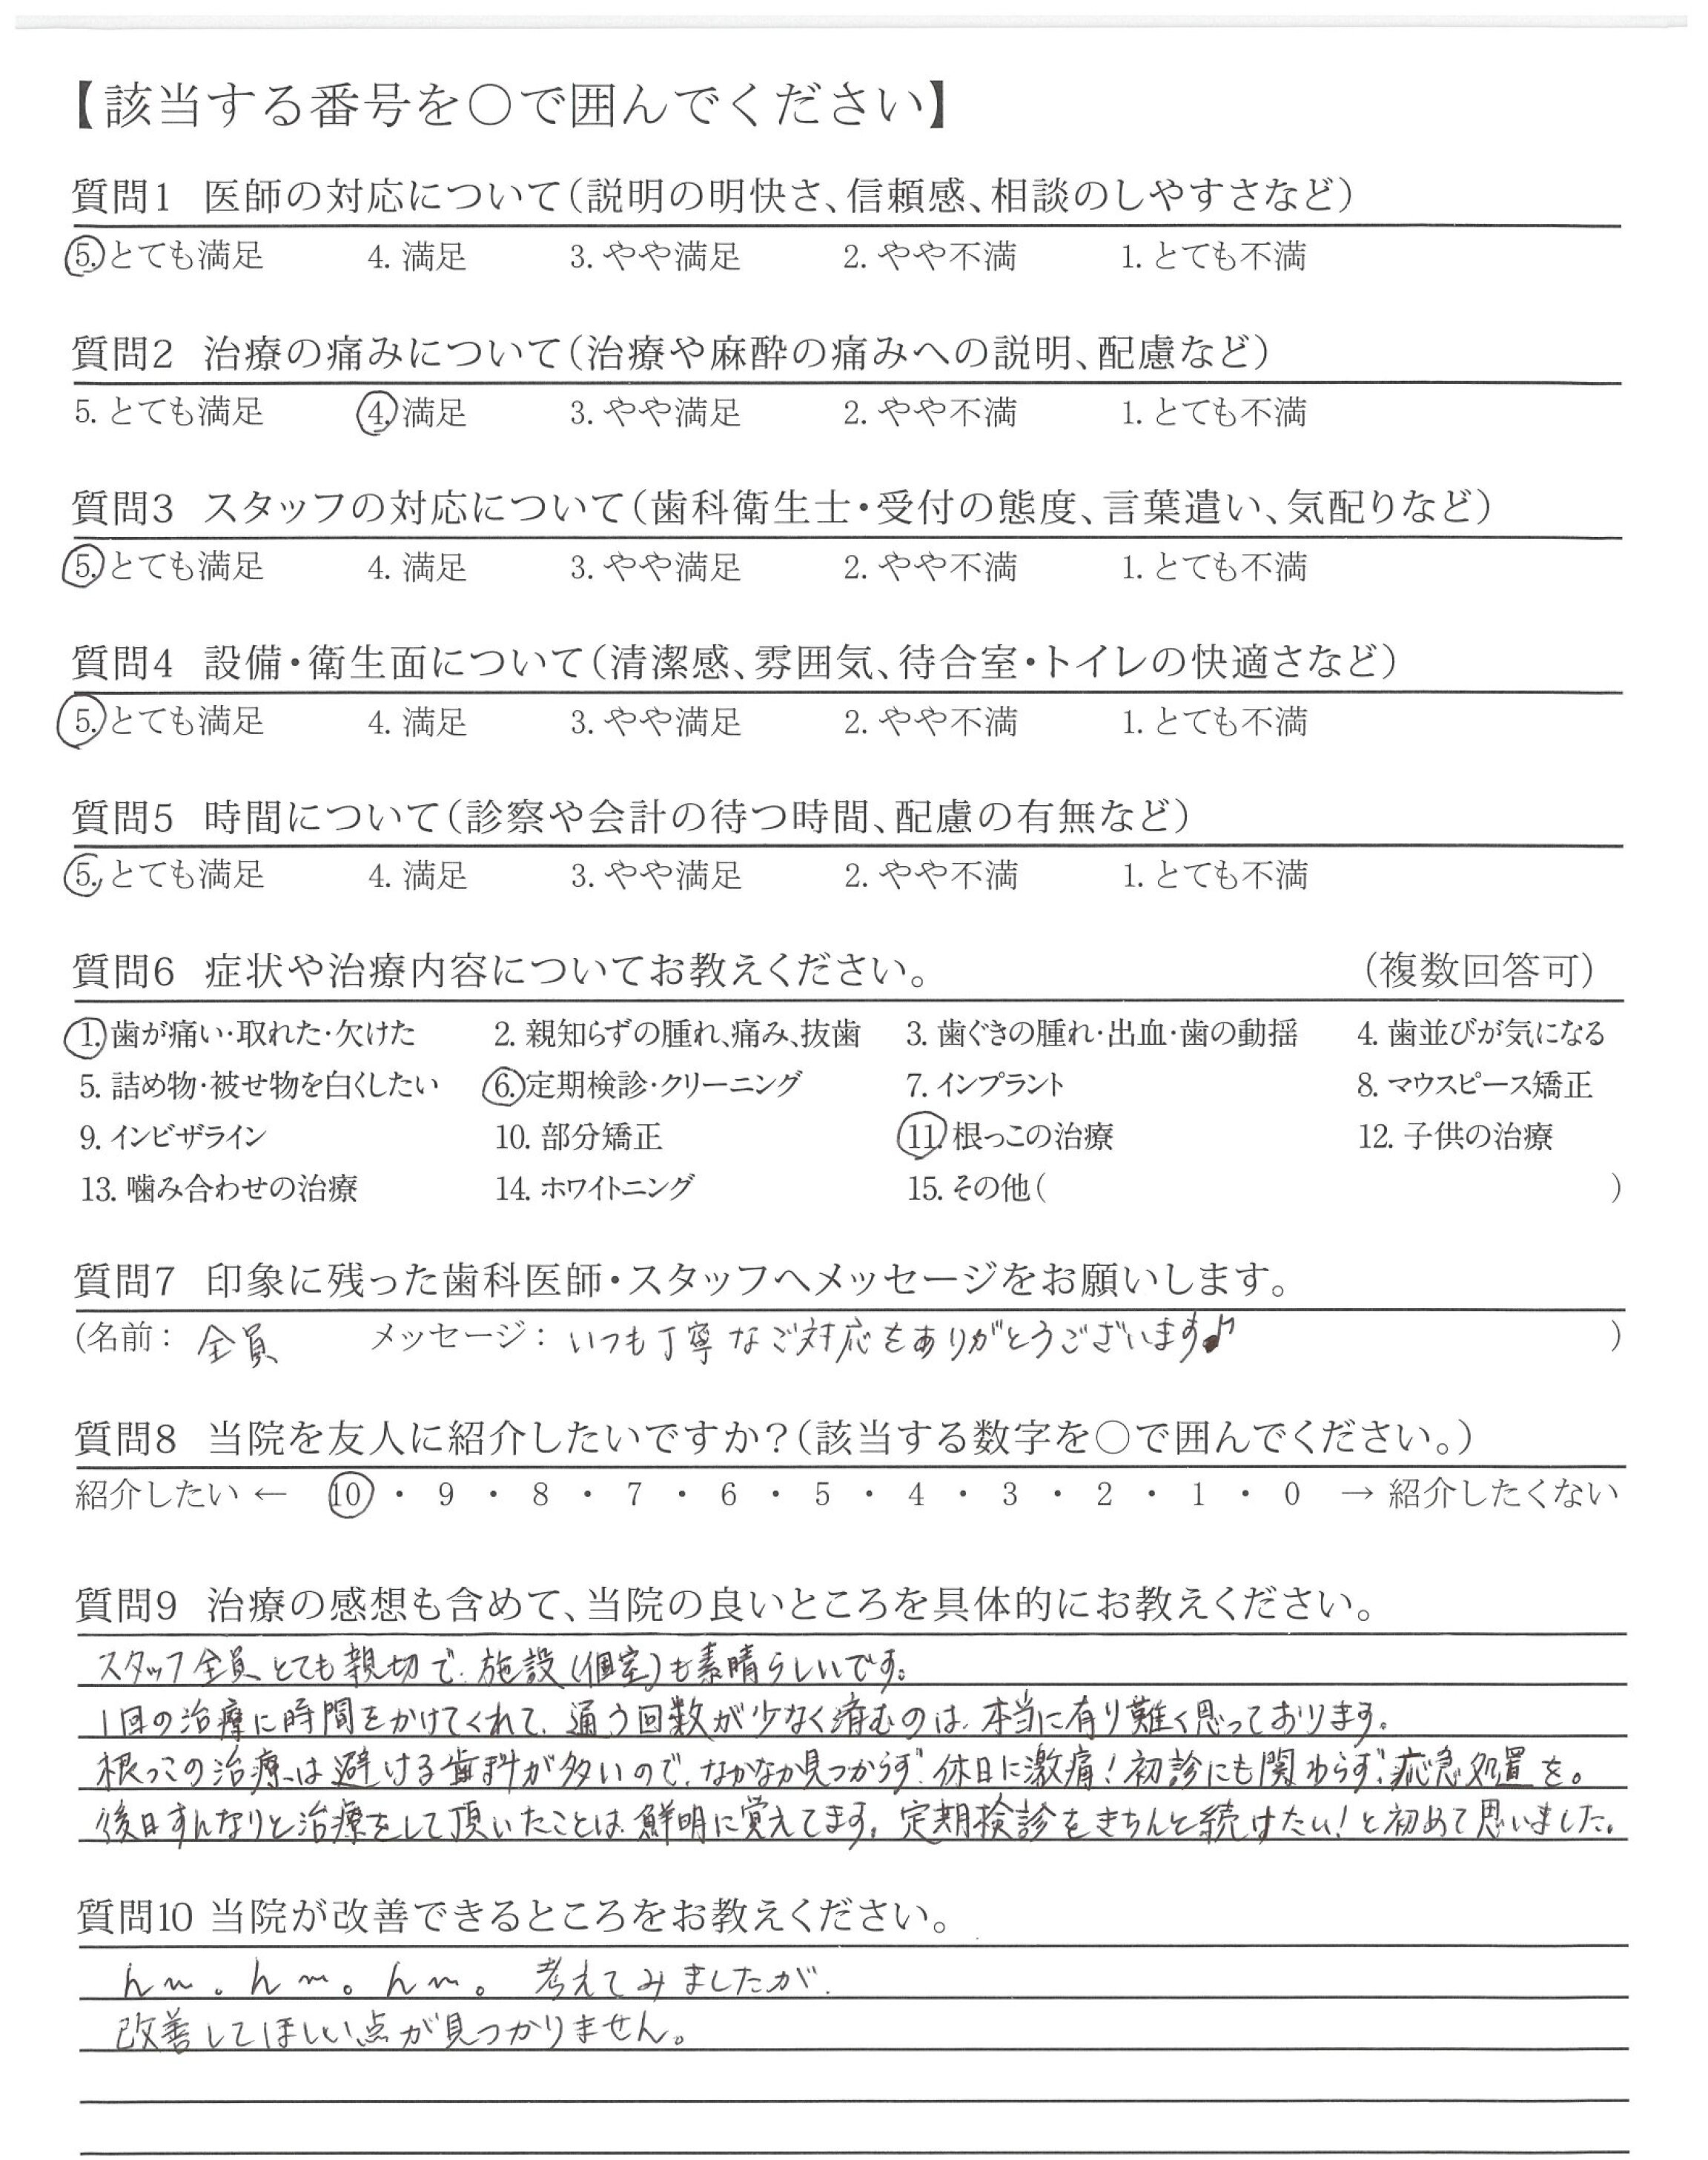 【該当する番号を○で囲んでください】
質問1 医師の対応について(説明の明快さ、信頼感、相談のしやすさなど)
5. とても満足 4. 満足 3. やや満足 2. やや不満 1. とても不満
質問2 治療の痛みについて(治療や麻酔の痛みへの説明、配慮など)
5. とても満足 4. 満足 3. やや満足 2. やや不満 1. とても不満
質問3 スタッフの対応について(歯科衛生士・受付の態度、言葉遣い、気配りなど)
5. とても満足 4. 満足 3. やや満足 2. やや不満 1. とても不満
質問4 設備・衛生面について(清潔感、雰囲気、待合室・トイレの快適さなど)
5. とても満足 4. 満足 3. やや満足 2. やや不満 1. とても不満
質問5 時間について(診察や会計の待つ時間、配慮の有無など)
5. とても満足 4. 満足 3. やや満足 2. やや不満 1. とても不満
質問6 症状や治療内容についてお教えください。 (複数回答可)
1. 歯が痛い・取れた・欠けた 2. 親知らずの腫れ、痛み、抜歯 3. 歯ぐきの腫れ・出血・歯の動揺 4. 歯並びが気になる
5. 詰め物・被せ物を白くしたい 6. 定期検診・クリーニング 7. インプラント 8. マウスピース矯正
9. インビザライン 10. 部分矯正 11. 根っこの治療 12. 子供の治療
13. 噛み合わせの治療 14. ホワイトニング 15. その他( )
質問7 印象に残った歯科医師・スタッフへメッセージをお願いします。
(名前: 全員 メッセージ: いつも丁寧なご対応をありがとうございます♪ )
質問8 当院を友人に紹介したいですか?(該当する数字を○で囲んでください。)
紹介したい ← 10 ・ 9 ・ 8 ・ 7 ・ 6 ・ 5 ・ 4 ・ 3 ・ 2 ・ 1 ・ 0 → 紹介したくない
質問9 治療の感想も含めて、当院の良いところを具体的にお教えください。
スタッフ全員とても親切で、施設(個室)も素晴らしいです。
1回の治療に時間をかけてくれて、通う回数が少なく済むのは、本当に有り難く思っております。
根っこの治療は避ける歯科が多いので、なかなか見つからず、休日に激痛!初診にも関わらず、応急処置を。
後日すんなりと治療をして頂いたことは、鮮明に覚えてます。定期検診をきちんと続けたい!と初めて思いました。
質問10 当院が改善できるところをお教えください。
んー。んー。んー。 考えてみましたが、
改善してほしい点が見つかりません。